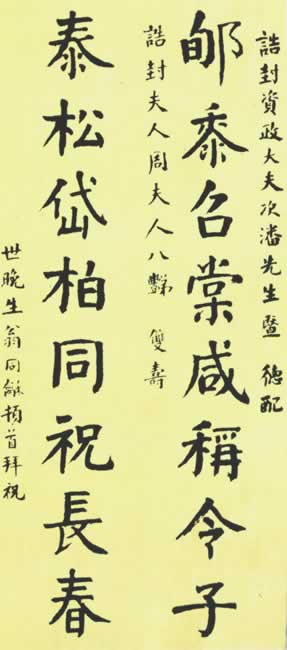 誥封資政大夫次潘先生暨 德配
郇黍召棠咸稱令子
誥封夫人周夫人八 雙壽
泰松岱柏同祝長春
世晚生翁同龢頓首拜祝